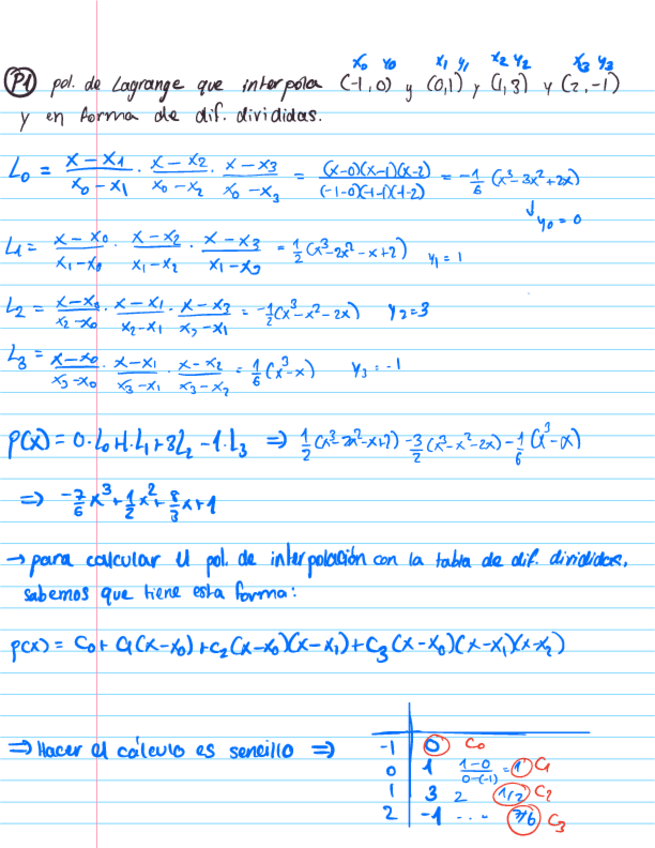 x₀ y₀ x₁ y₁ x₂ y₂ x₃ y₃
P1 pol. de Lagrange que interpola (-1,0) y (0,1), (1,3) y (2,-1)
y en forma de dif. divididas.
L₀ = (x-x₁)/(x₀-x₁) · (x-x₂)/(x₀-x₂) · (x-x₃)/(x₀-x₃) = (x-0)(x-1)(x-2)/(-1-0)(-1-1)(-1-2) = -1/6 (x³-3x²+2x)
↓ y₀ = 0
L₁ = (x-x₀)/(x₁-x₀) · (x-x₂)/(x₁-x₂) · (x-x₃)/(x₁-x₃) = 1/2 (x³-2x²-x+2) y₁ = 1
L₂ = (x-x₀)/(x₂-x₀) · (x-x₁)/(x₂-x₁) · (x-x₃)/(x₂-x₁) = -1/2 (x³-x²-2x) y₂=3
L₃ = (x-x₀)/(x₃-x₀) · (x-x₁)/(x₃-x₁) · (x-x₂)/(x₃-x₂) = 1/6 (x³-x) y₃ = -1
p(x) = 0·L₀+1·L₁+3L₂-1·L₃ ⇒ 1/2 (x³-2x²-x+2) -3/2 (x³-x²-2x) -1/6 (x³-x)
⇒ -7/6 x³+1/2 x²+8/3 x+1
→ para calcular el pol. de interpolación con la tabla de dif. divididas,
sabemos que tiene esta forma:
p(x) = C₀+ C₁(x-x₀)+C₂(x-x₀)(x-x₁)+C₃(x-x₀)(x-x₁)(x-x₂)
⇒ Hacer el cálculo es sencillo ⇒
-1 0 C₀
0 1 (1-0)/(0-(-1)) = 1 C₁
1 3 2 1/2 C₂
2 -1 ... 7/6 C₃